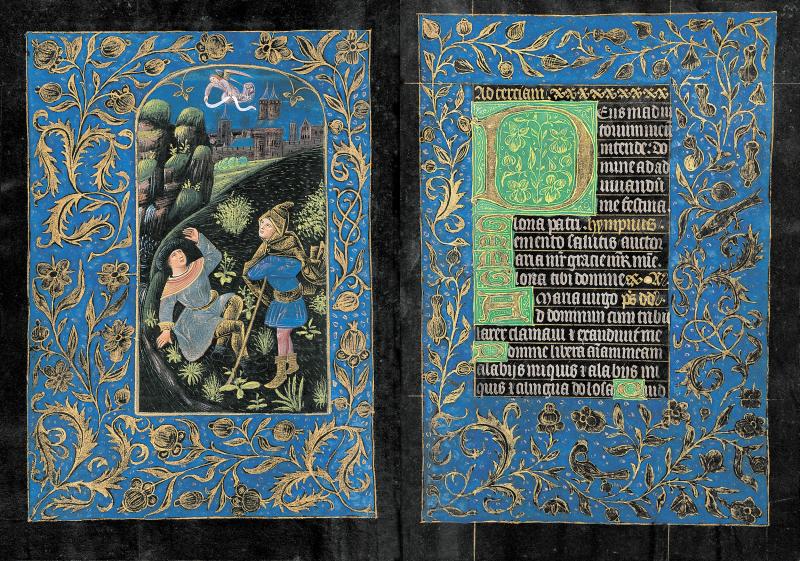 Ad terciam.
Deus in adiu
torium meu
intende: do
mine ad ad
iuuandu
me festina.
Gloria patri. hympnus.
Memento salutis auctor
Maria mr gracie mr mie
Gloria tibi domine
Maria uirgo ps dd.
Ad dominum cum tribu
larer clamaui & exaudiuit me
Domine libera aiam meam
a labijs iniquis & a labijs ini
quis & a lingua dolosa Quid